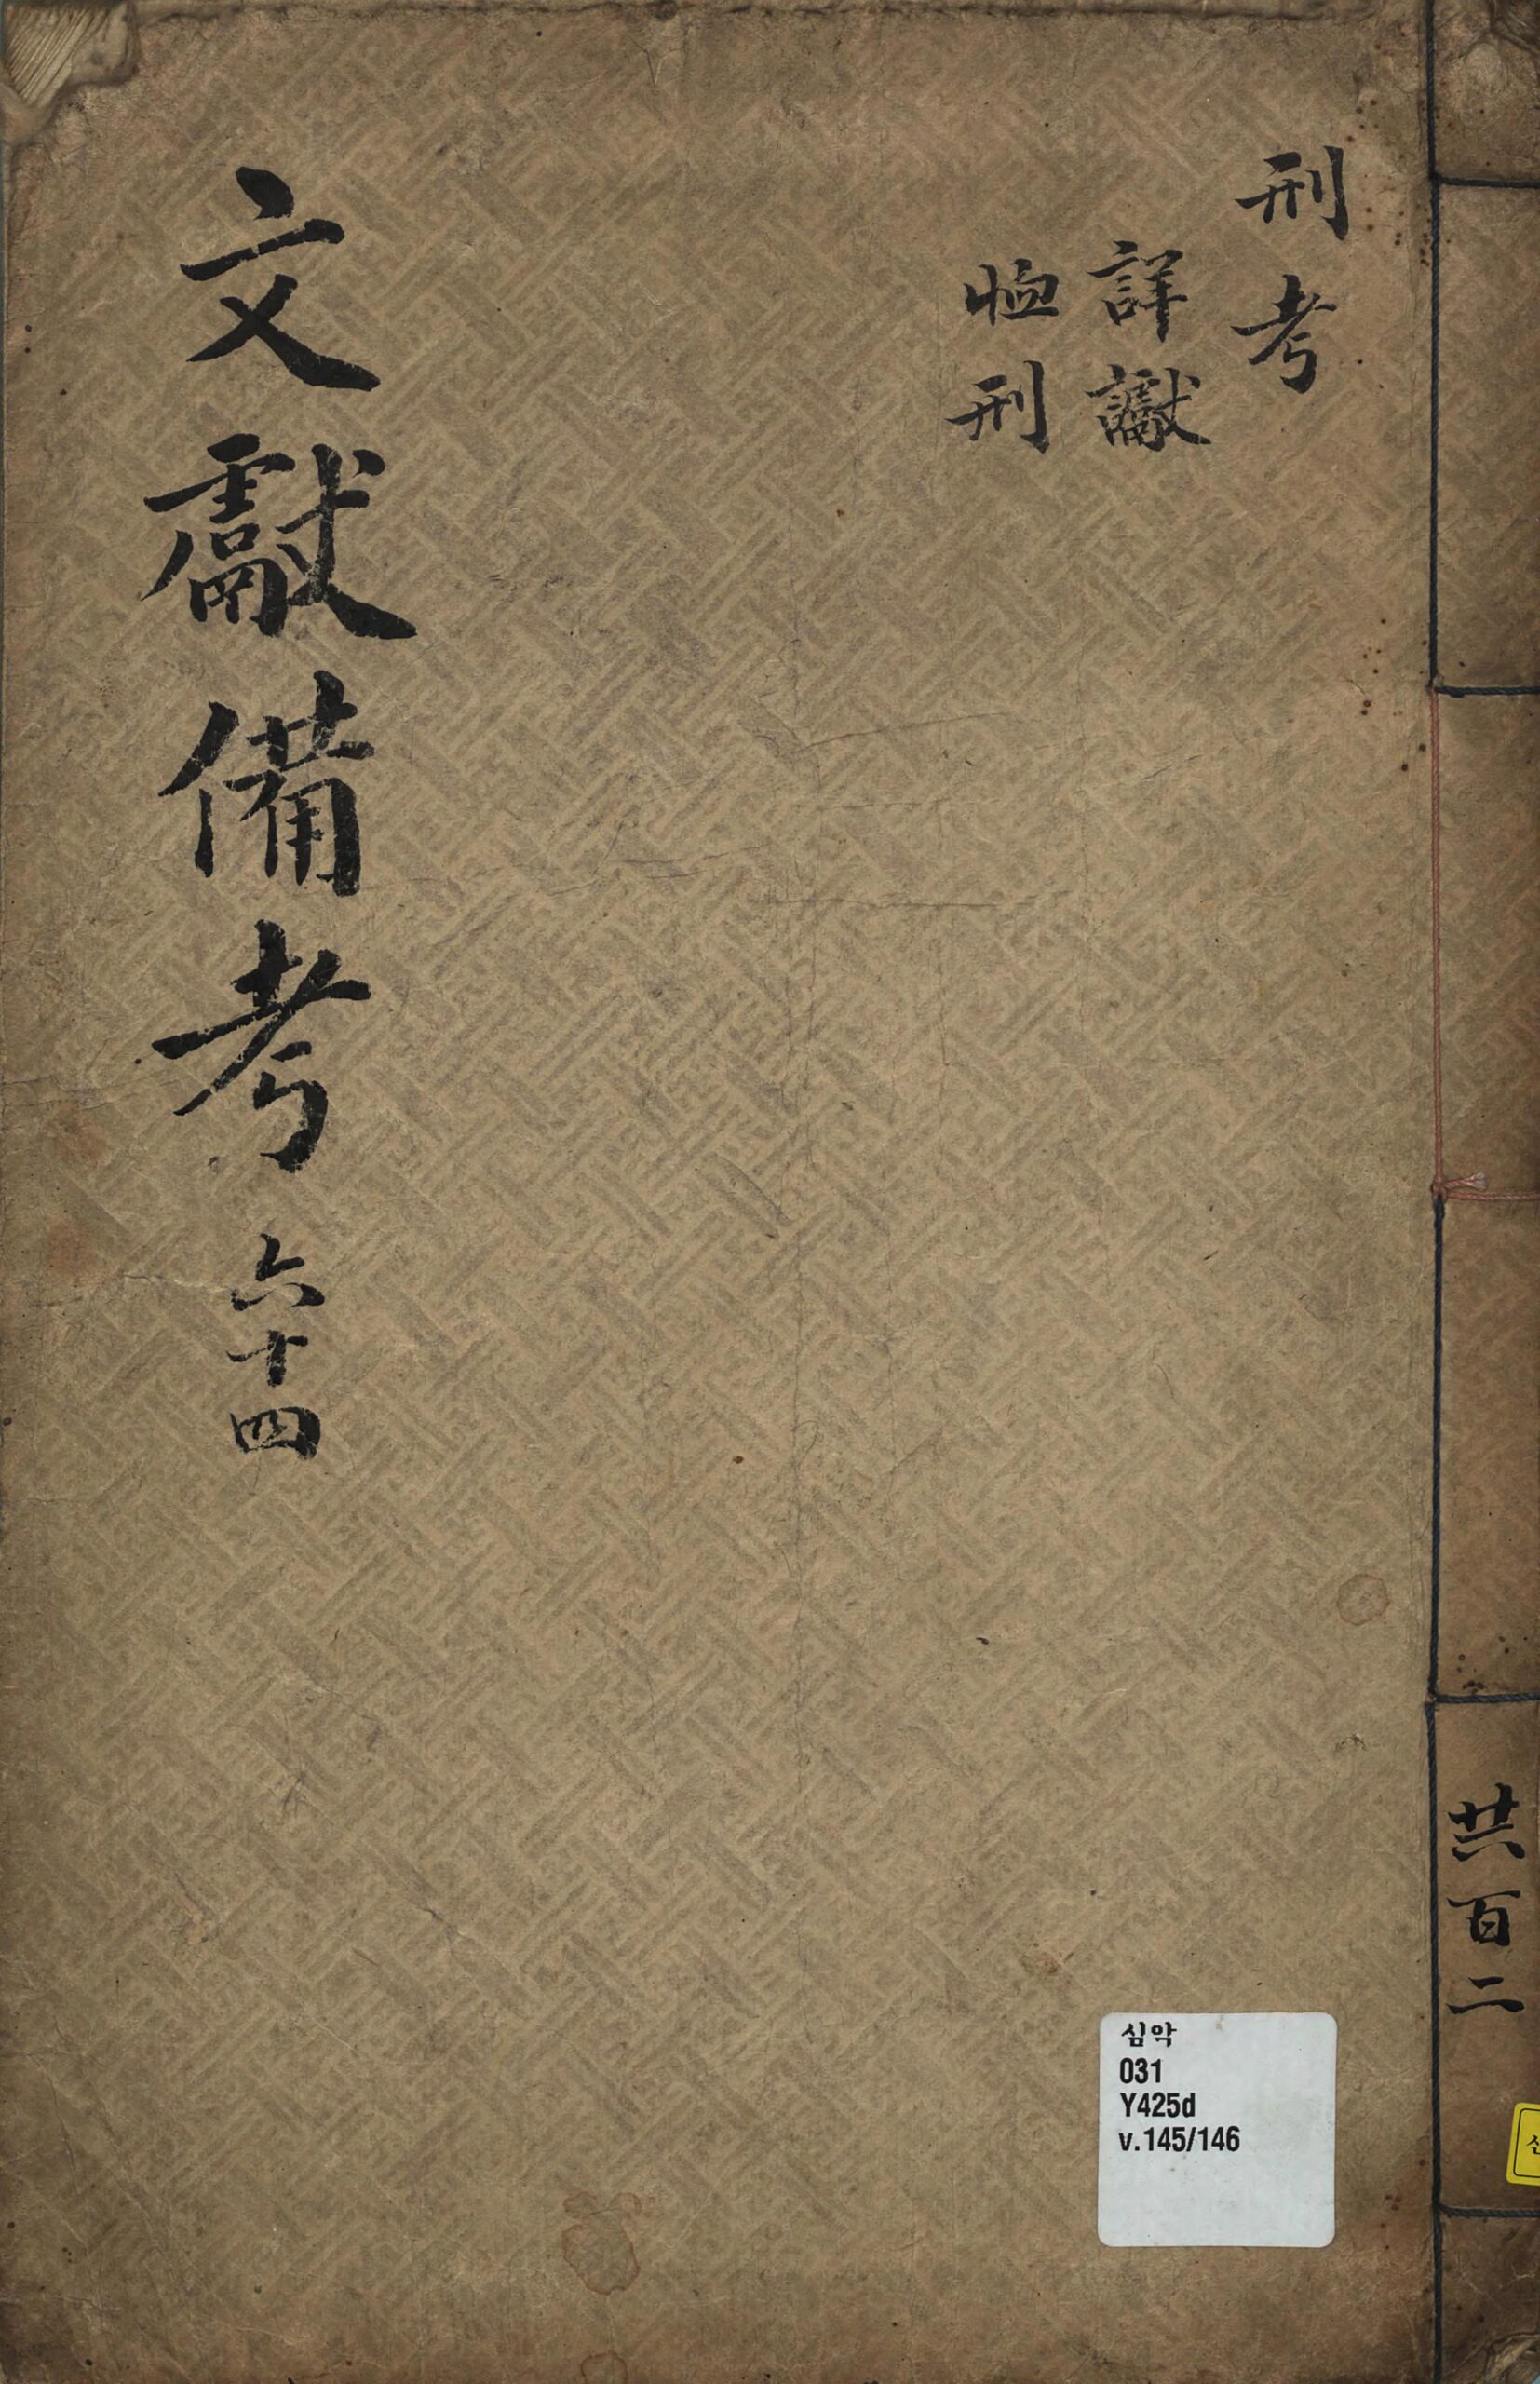 刑考
詳讞
恤刑
文獻備考 六十四
共百二
심악
031
Y425d
v.145/146